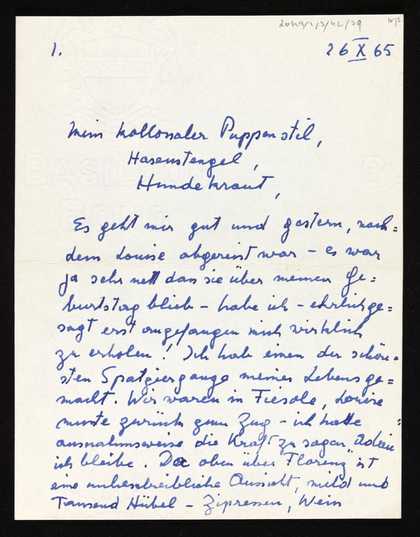 1.
26 X 65
Mein kollosaler Puppenstil,
Hasenstengel,
Hundekraut,
Es geht mir gut und gestern, nach=
dem Louise abgereist war – es war
ja sehr nett das sie über meinen Ge=
burtstag blieb – habe ich – ehrlichge=
sagt erst angefangen mich wirklich
zu erholen! Ich hab einen der schön=
sten Spatziergange meines Lebens ge=
macht. Wir waren in Fiesole, Louise
musste zurück zum Zug – ich hatte
ausnahmsweise die Kraft zu sagen "Adieu
ich bleibe. Da oben über Florenz ist
eine unbeschreibliche Aussicht, mild und
Tausend Hübel – Zipressen, Wein